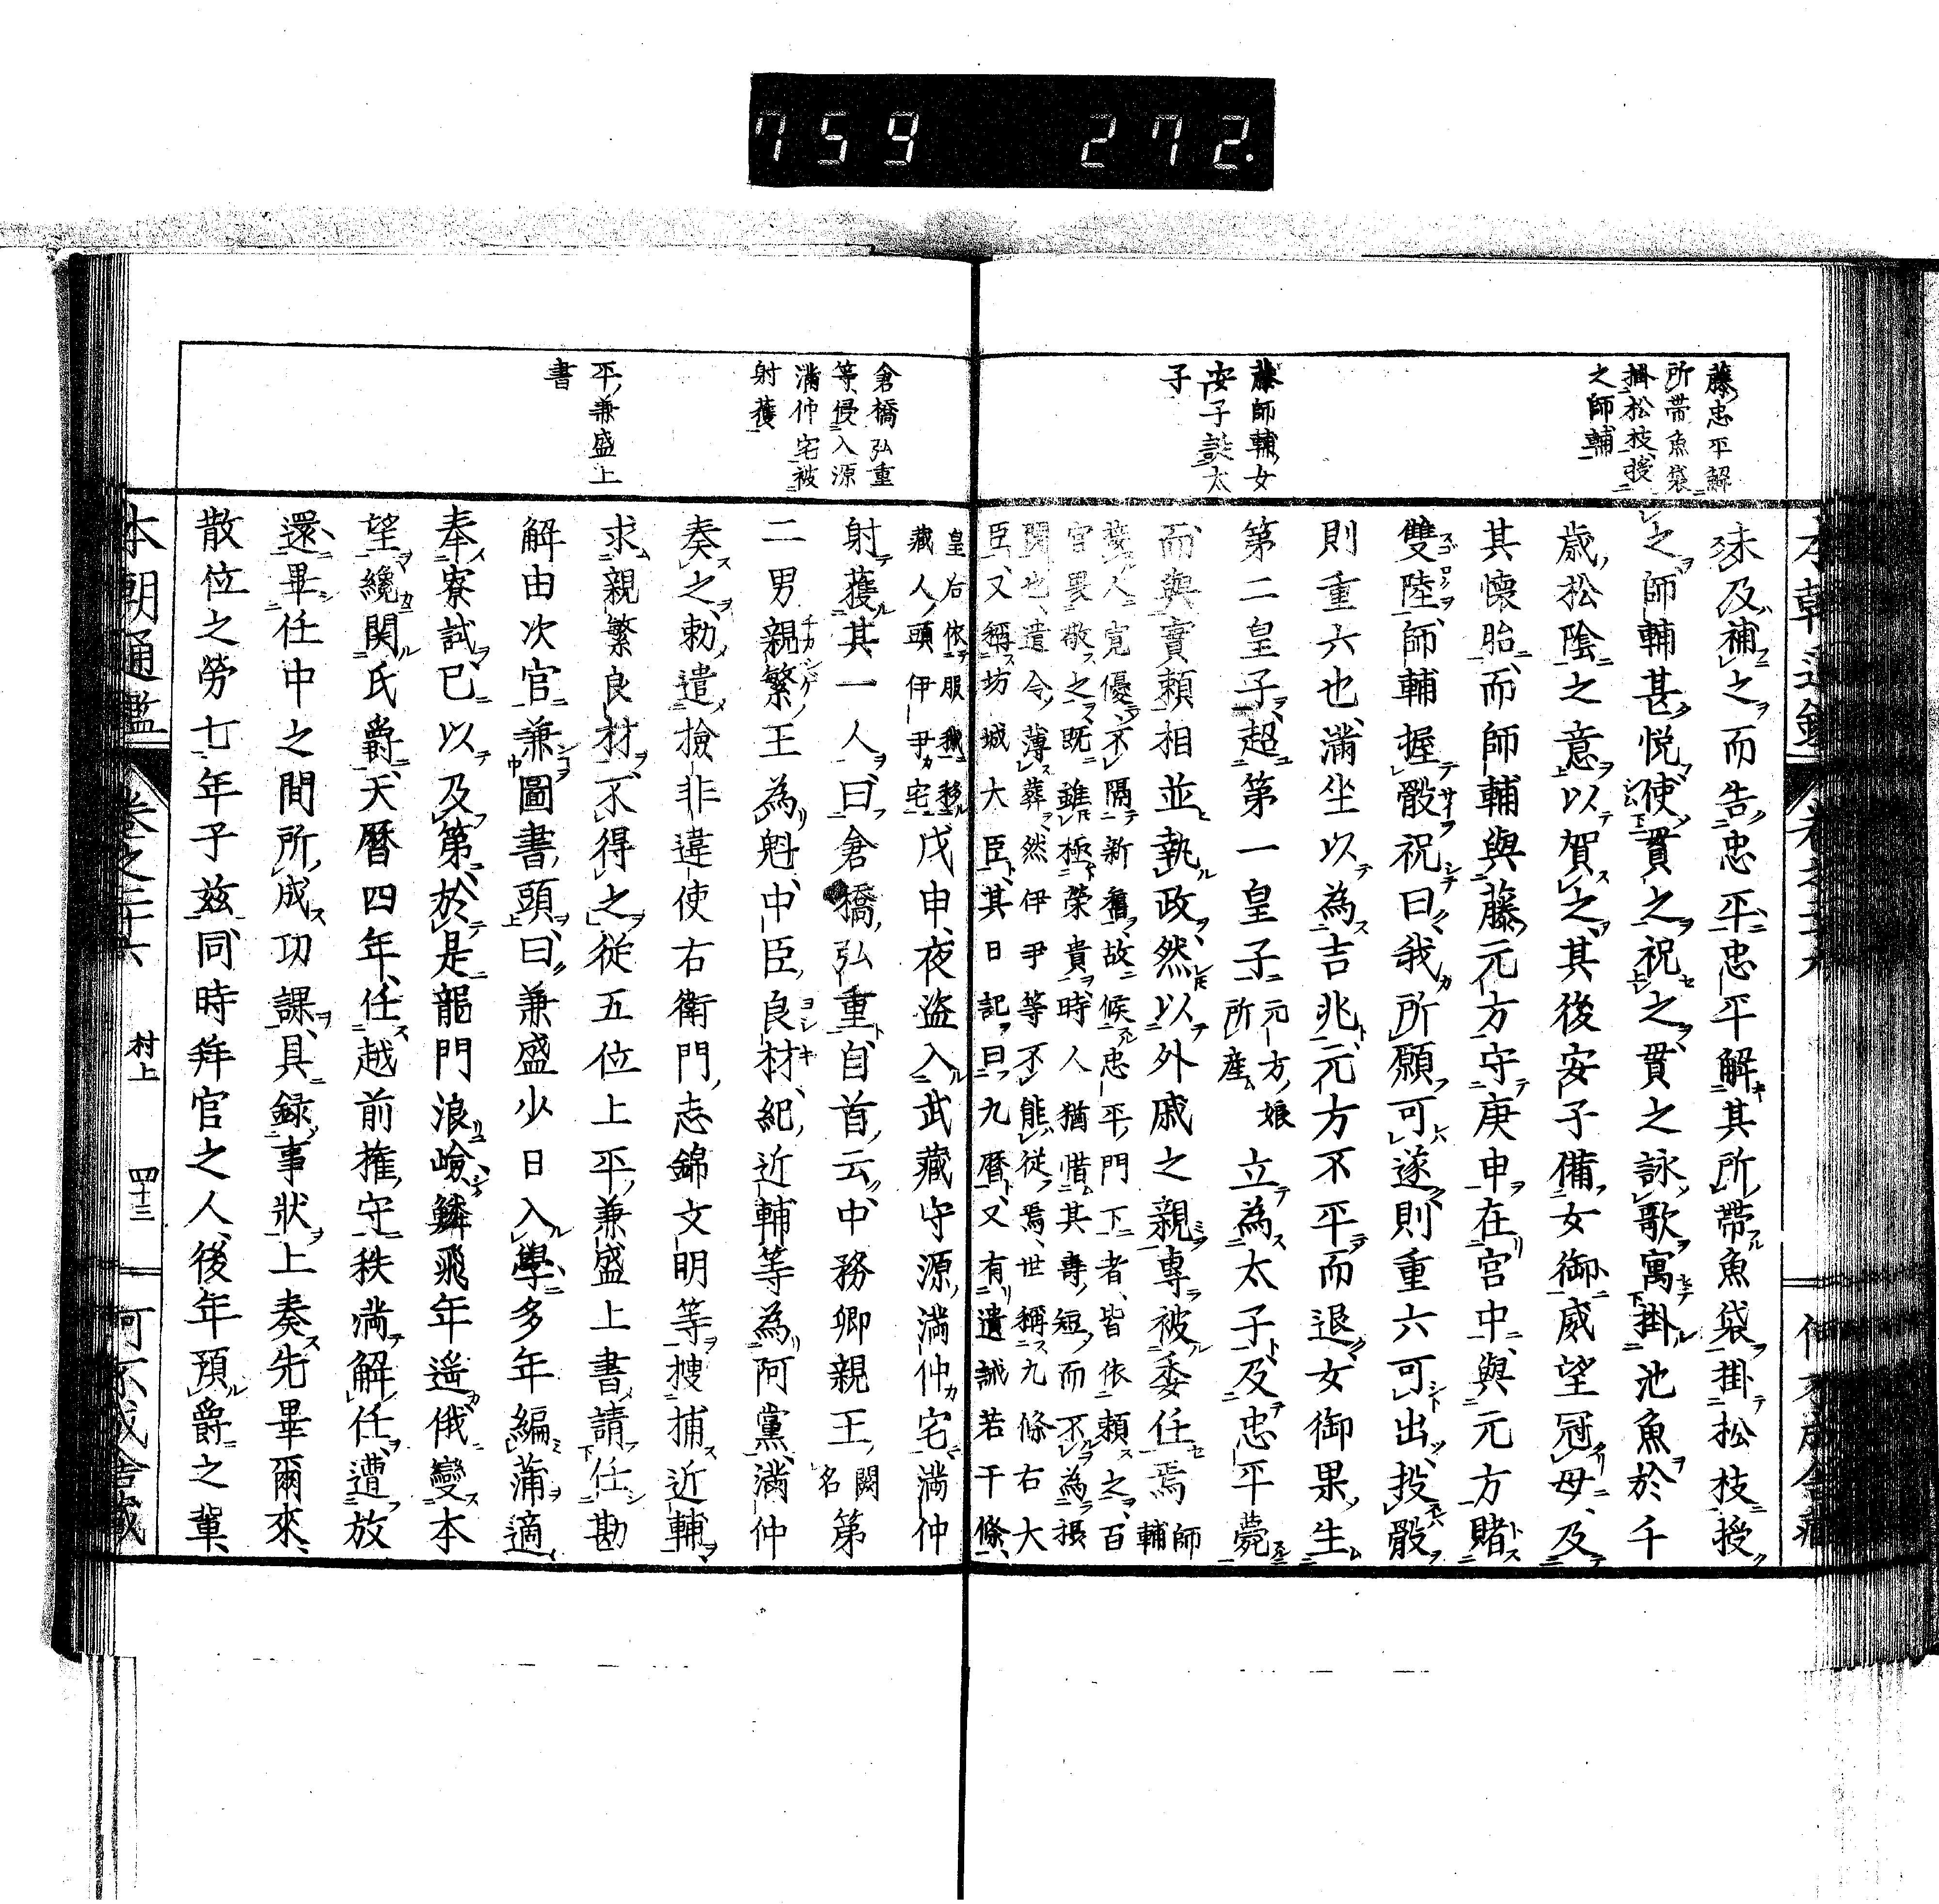 759 272.
藤忠平解
所帯魚袋
掛松枝授
之師輔
藤師輔女
安子誕太
子
未及補之而告忠平忠平解其所帶魚袋掛松枝授
之師輔甚悅使貫之祝之貫之詠歌寓掛池魚於千
歳松陰之意以賀之其後安子備女御威望冠母及
其懷胎而師輔與藤元方守庚申在宮中與元方賭
雙陸師輔握骰祝曰我所願可遂則重六可出投骰
則重六也滿坐以為吉兆元方不平而退女御果生
第二皇子超第一皇子元方娘
所產立為太子及忠平薨
而與實頼相並執政然以外戚之親專被委任焉師
輔
為人寛優不隔新舊故候忠平門下者皆依頼之百
官畏敬之既雖極榮貴時人猶惜其壽短而不為摂
関也遺令薄葬然伊尹等不能從焉世稱九條右大
臣又稱坊城大臣其日記曰九曆又有遺誡若干條
倉橋弘重
等侵入源
滿仲宅被
射獲
平兼盛上
書
皇后依服
藏人頭伊尹宅戊申夜盗入武藏守源滿仲宅滿仲
射獲其一人曰倉橋弘重自首云中務卿親王闕
名第
二男親繁王為魁中臣良材紀近輔等為阿黨滿仲
奏之勅遣撿非違使右衛門志錦文明等捜捕近輔
求親繁良材不得之從五位上平兼盛上書請任勘
解由次官兼圖書頭曰兼盛少日入學多年編蒲適
奉寮試已以及第於是龍門浪嶮鱗飛年遥俄變本
望纔關氏爵天曆四年任越前權守秩滿解任遭放
還畢任中之間所成功課具錄事狀上奏先畢爾來
散位之勞七年于茲同時拜官之人後年預爵之輩
本朝通鑑 卷之二十六 村上 四十三